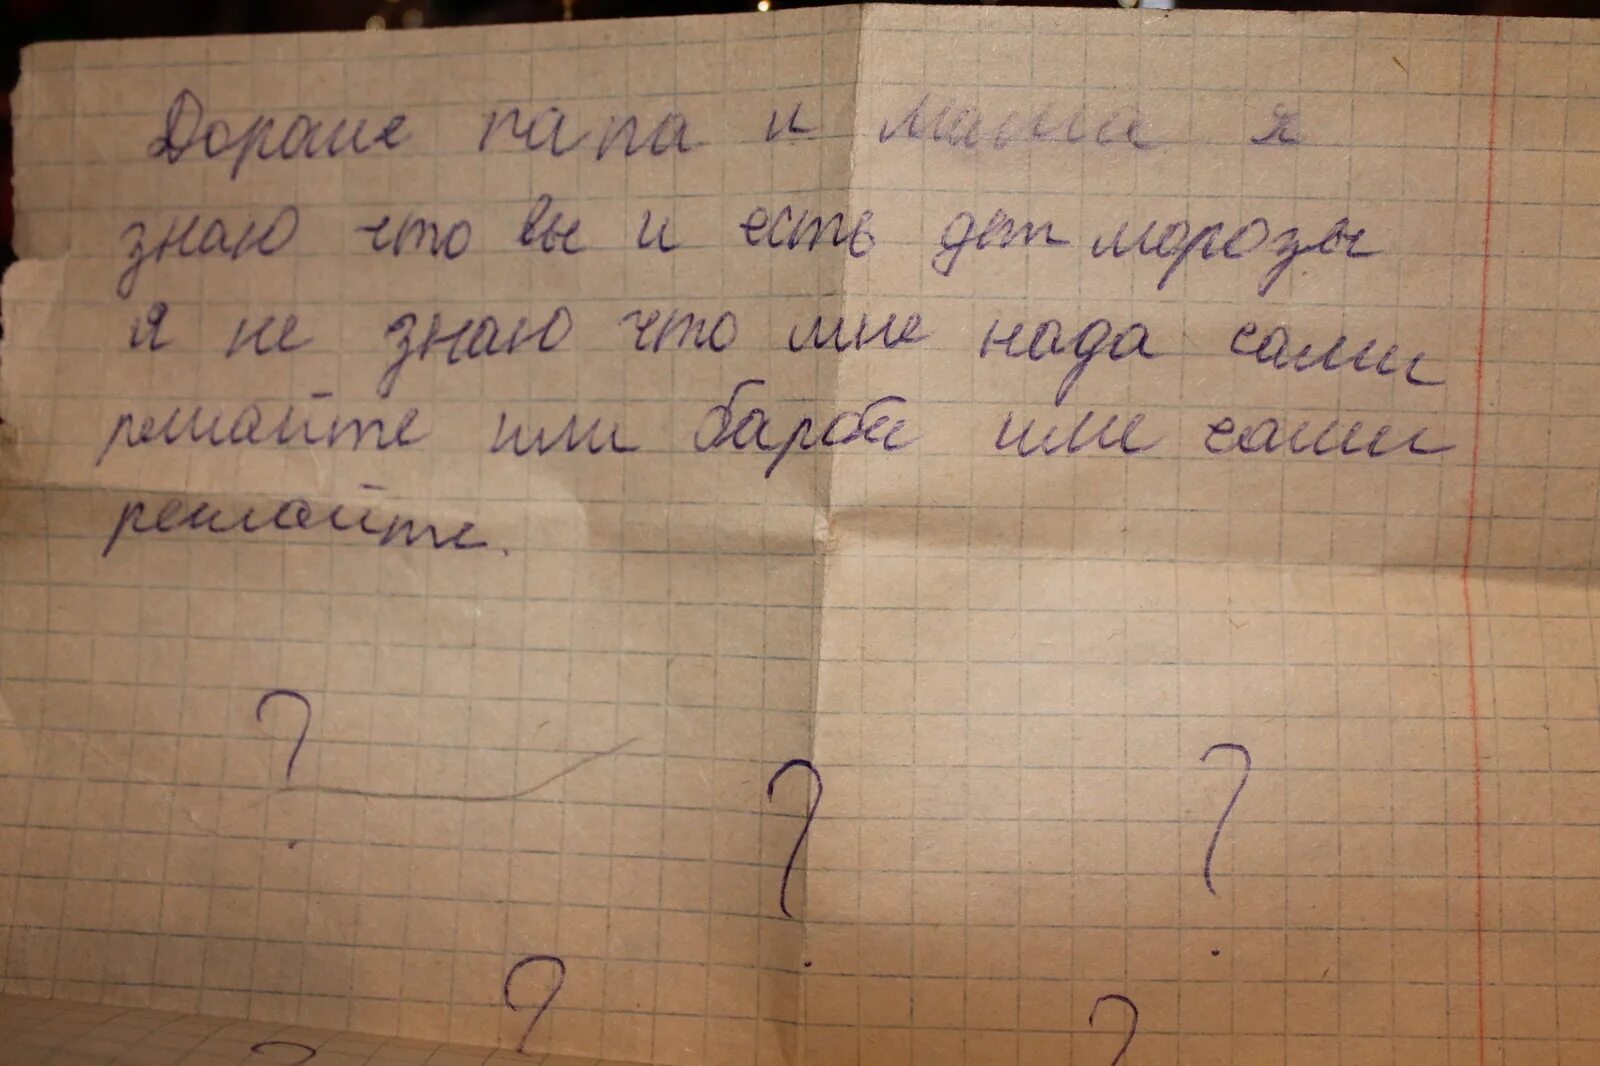 Дорогие папа и мама я
знаю что вы и есть дет морозы
я не знаю что мне нада сами
решайте или барби или сами
решайте.
? ? ?
? ?
?